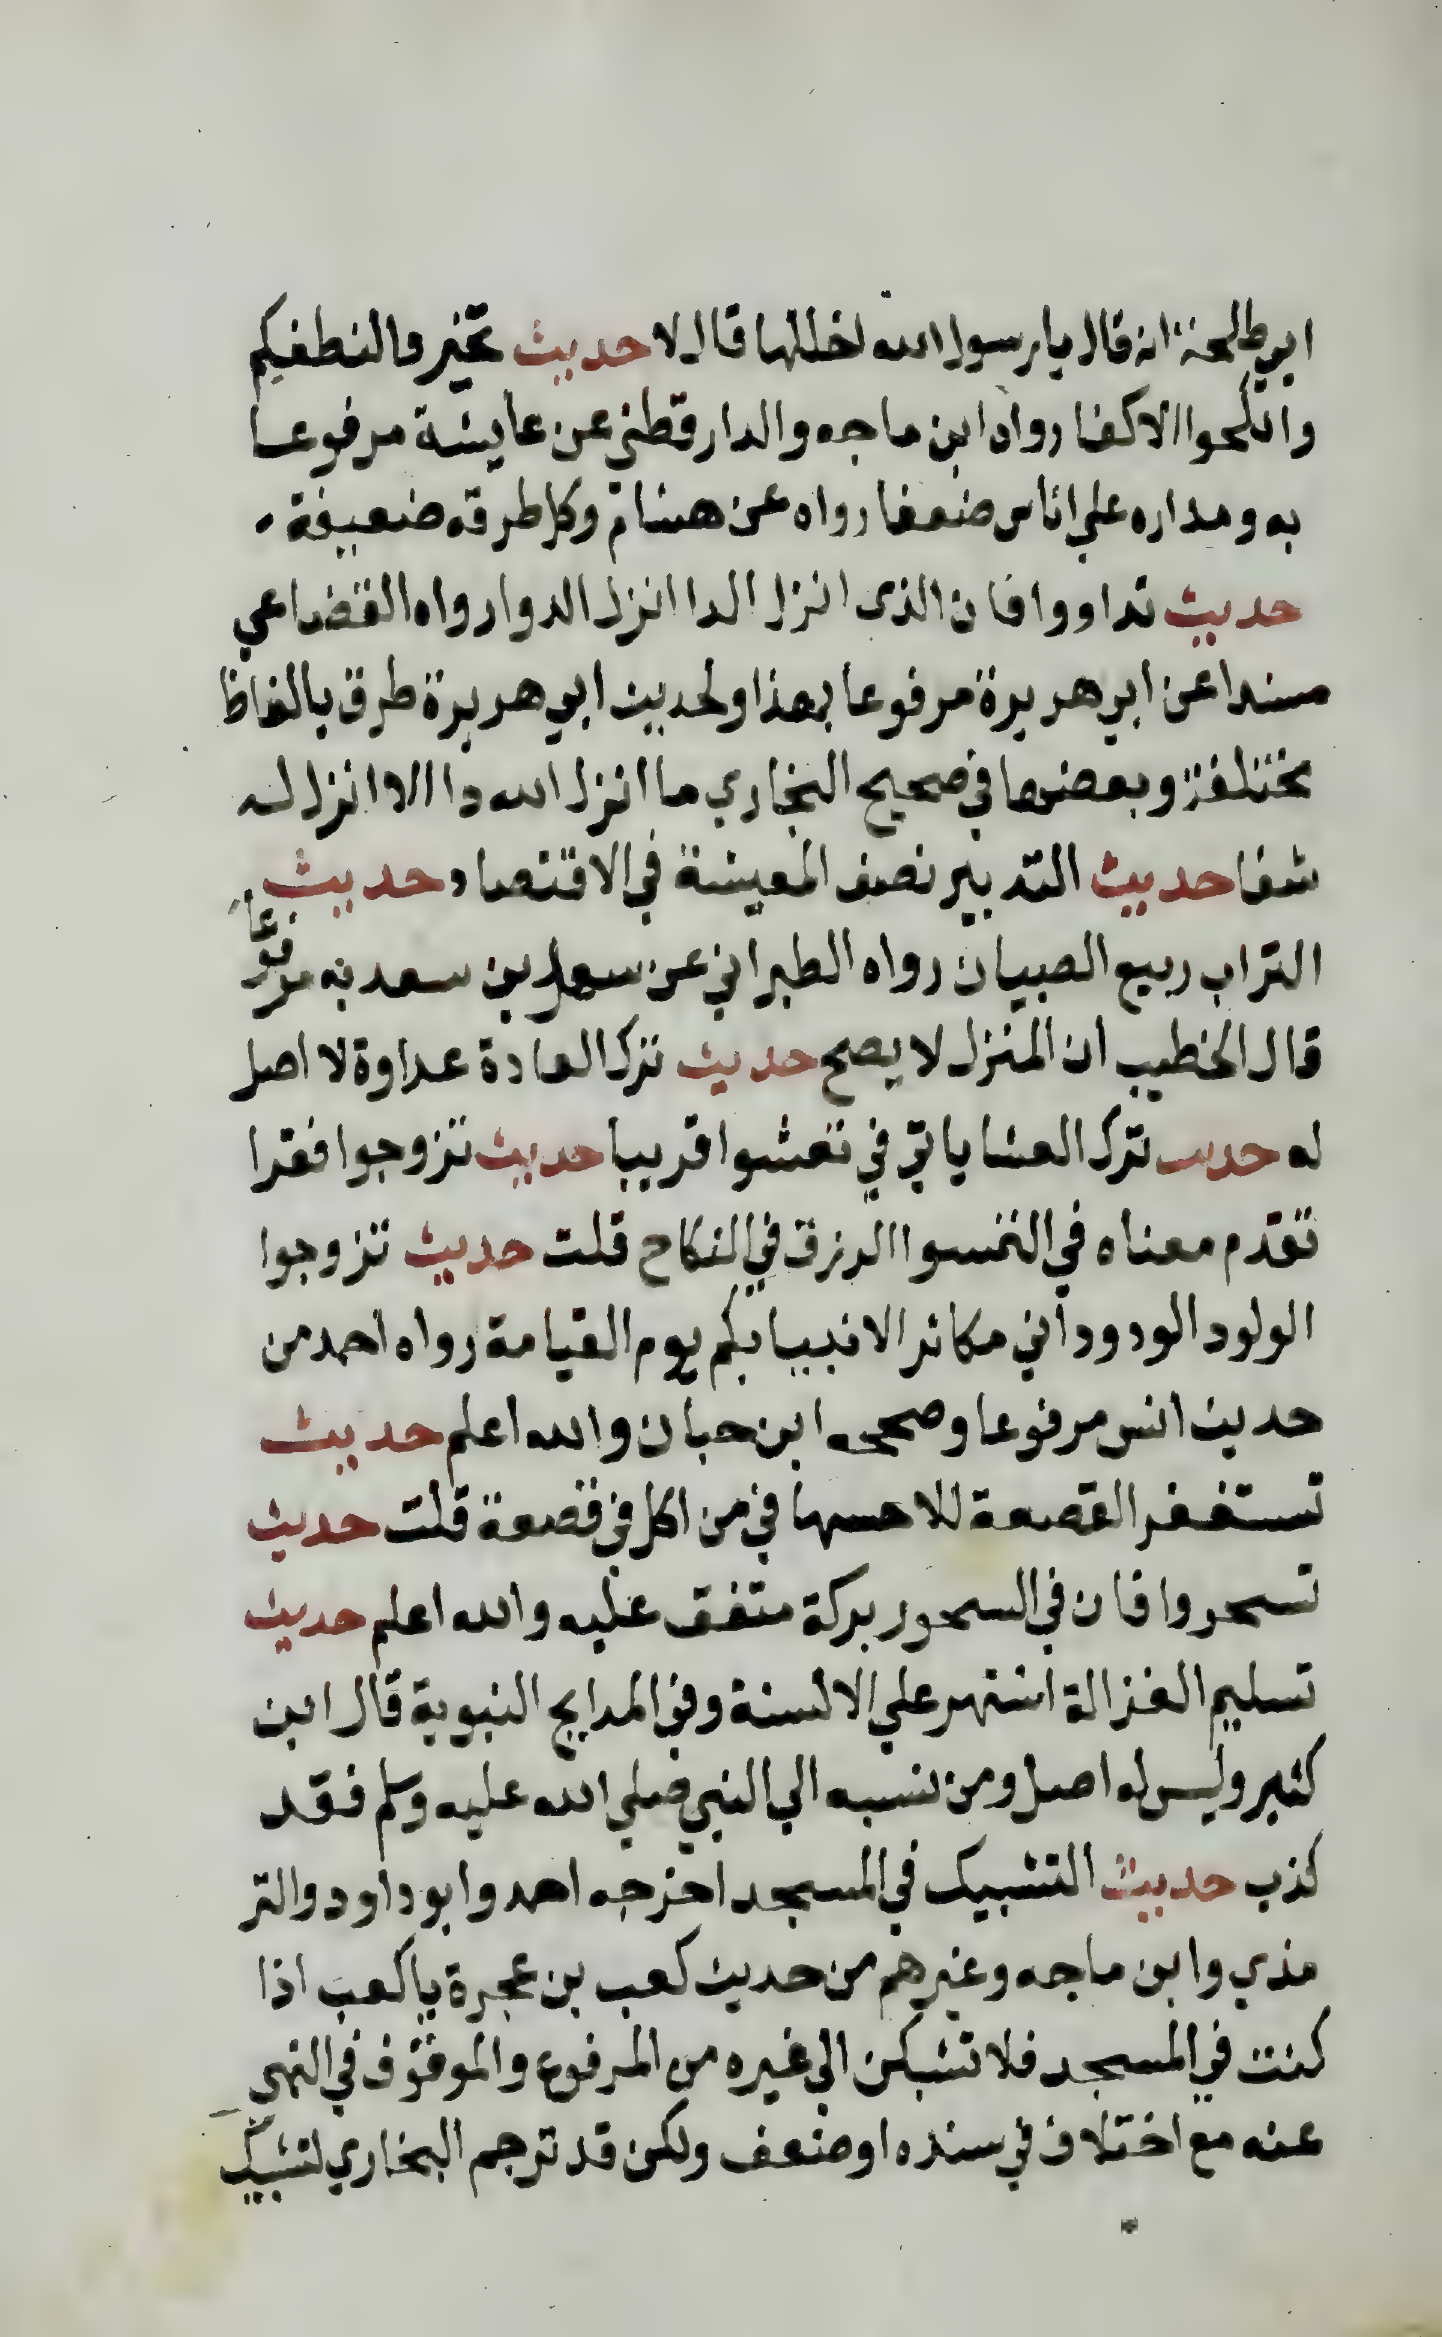 ابي طلحة انه قال يا رسول الله اخللها قال لا حديث تخيروا لنطفكم
وانكحوا الاكفا رواه ابن ماجه والدارقطني عن عايشة مرفوعا
به ومداره علي اناس ضعفا رواه عن هشام وكل طرقه ضعيفة
حديث تداووا فان الذي انزل الدا انزل الدوا رواه القضاعي
مسندا عن ابي هريرة مرفوعا بهذا ولحديث ابي هريرة طرق بالفاظ
مختلفة وبعضها في صحيح البخاري ما انزل الله دا الا انزل له
شفا حديث التدبير نصف المعيشة في الاقتصاد حديث
التراب ربيع الصبيان رواه الطبراني عن سهل بن سعد به مرفوعا
قال الخطيب ان المتزل لا يصح حديث ترك العادة عداوة لا اصل
له حديث ترك العشا ياتي في تعشوا قريبا حديث تزوجوا فقرا
تقدم معناه في التمسوا الرزق في النكاح قلت حديث تزوجوا
الولود الودود اني مكاثر الانبيا بكم يوم القيامة رواه احمد من
حديث انس مرفوعا وصححه ابن حبان والله اعلم حديث
تستغفر القصعة للاحسها في من اكل في قصعة قلت حديث
تسحروا فان في السحور بركة متفق عليه والله اعلم حديث
تسليم الغزالة اشتهر علي الالسنة وفي المدايح النبوية قال ابن
كثير وليس له اصل ومن نسبه الي النبي صلي الله عليه وسلم فقد
كذب حديث التشبيك في المسجد اخرجه احمد وابو داود والتر
مذي وابن ماجه وغيرهم من حديث كعب بن عجرة يا كعب اذا
كنت في المسجد فلا تشبكن الي غيره من المرفوع والموقوف في النهي
عنه مع اختلاف في سنده او ضعف ولكن قد ترجم البخاري لتشبيك